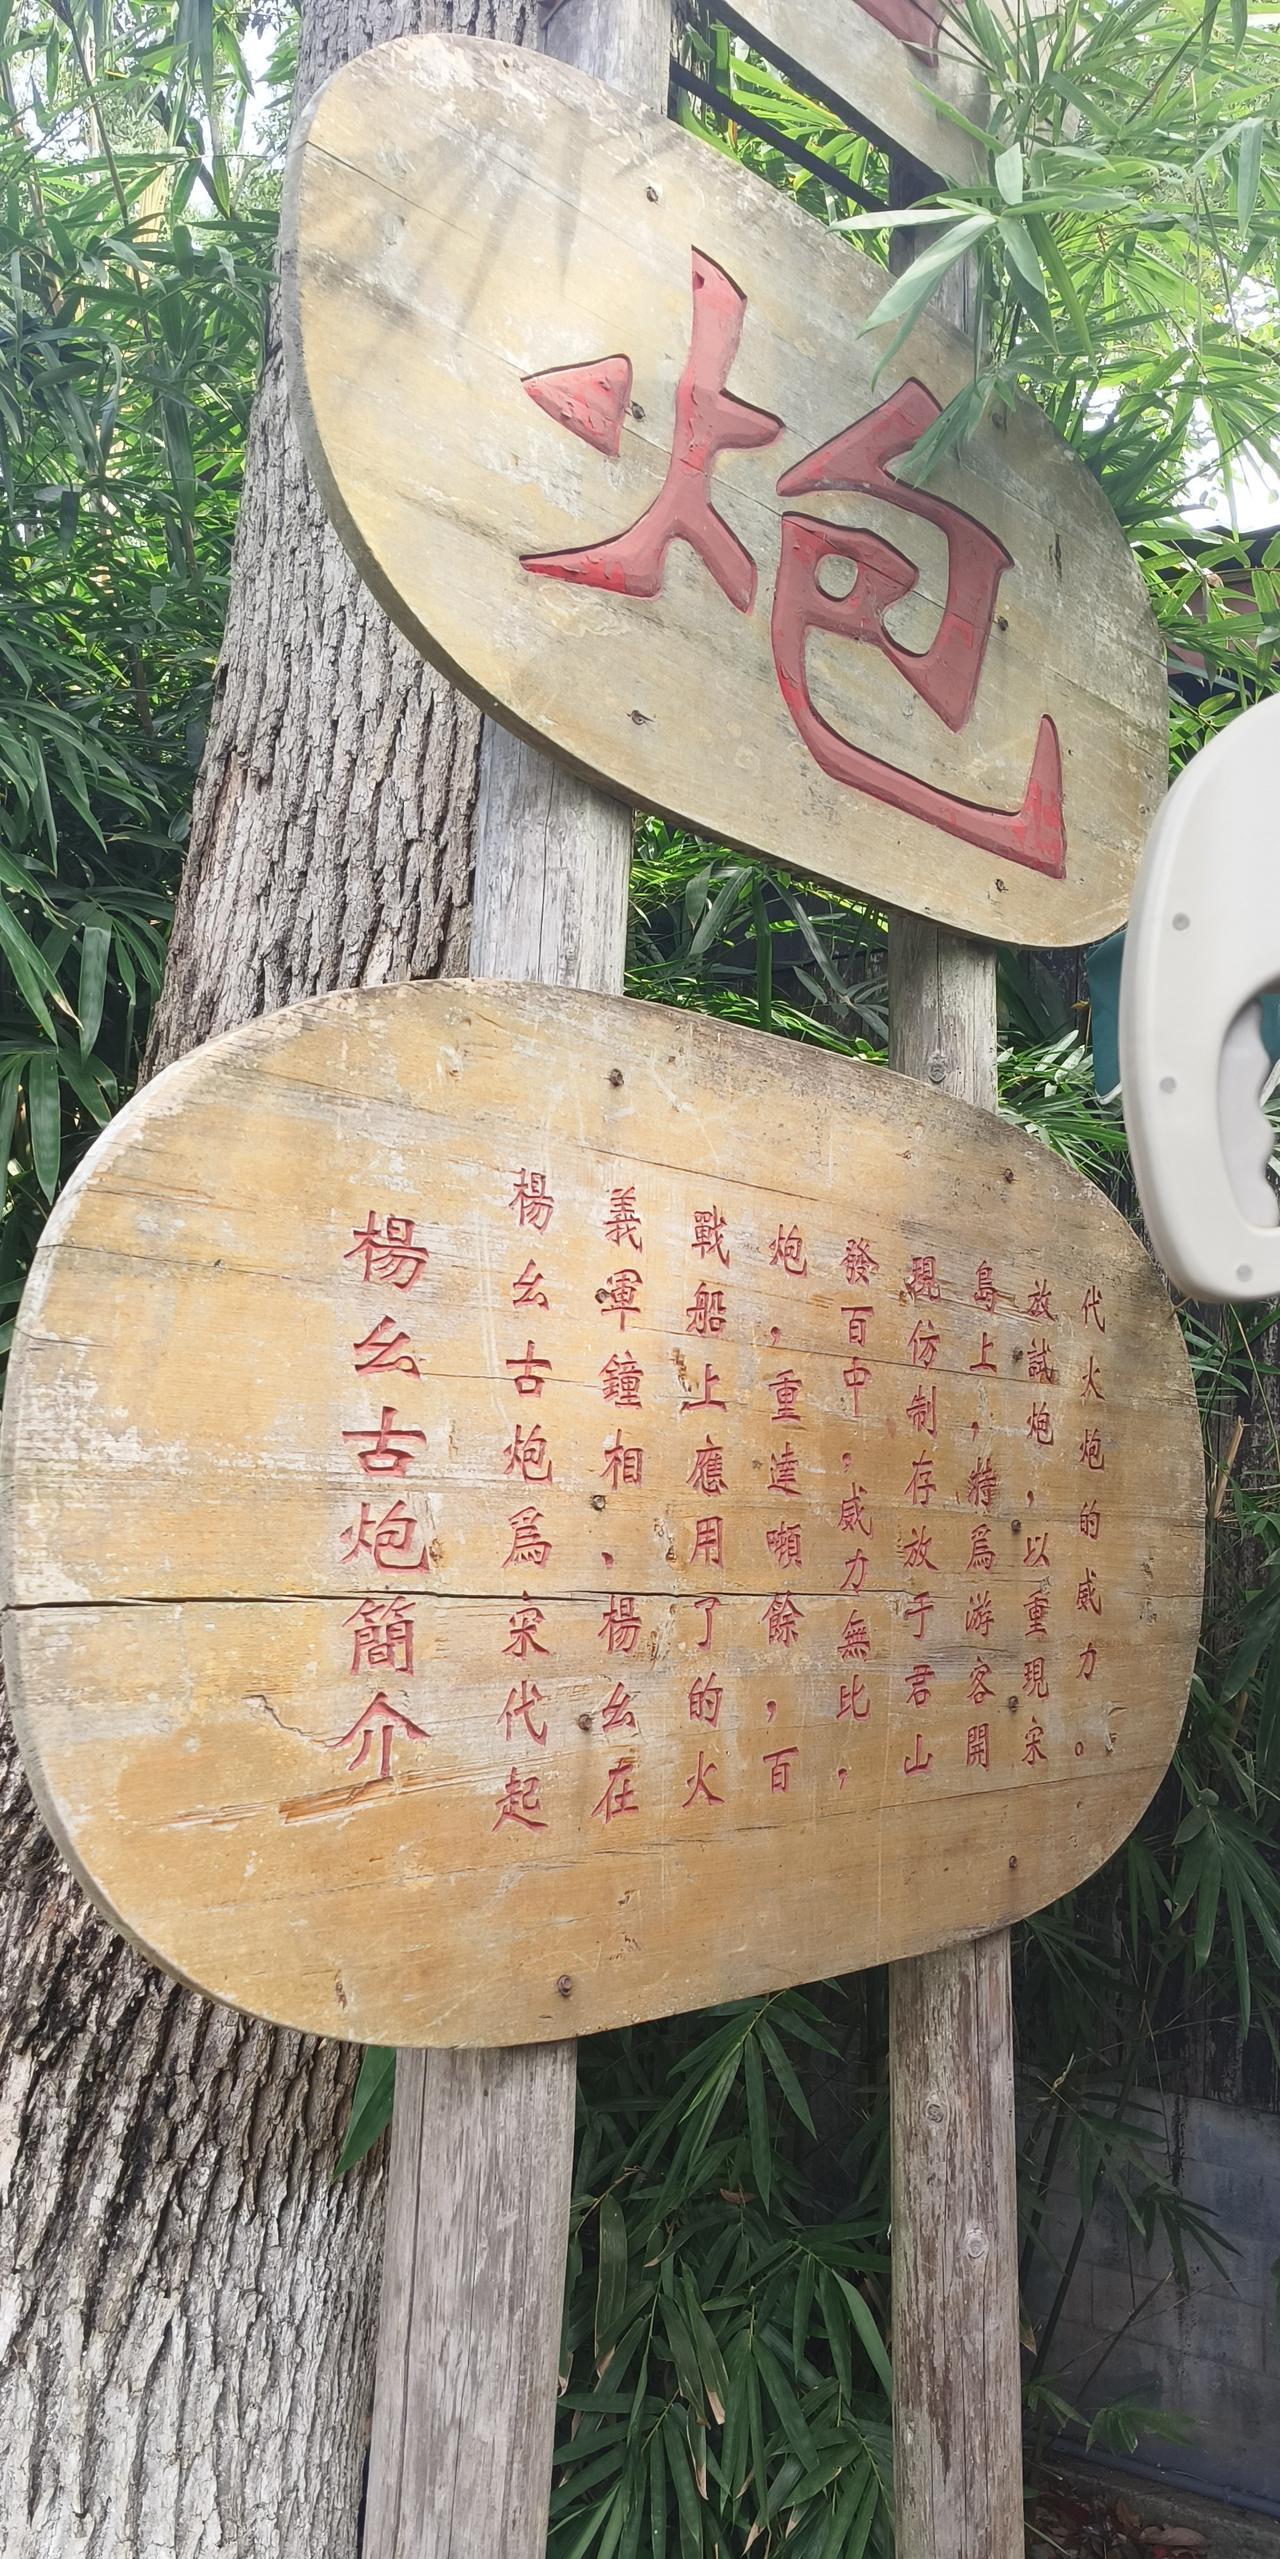 炮
楊幺古炮簡介
楊幺古炮爲宋代起
義軍鐘相、楊幺在
戰船上應用了的火
炮，重達噸餘，百
發百中，威力無比，
現仿制存放于君山
島上，特爲游客開
放試炮，以重現宋
代火炮的威力。